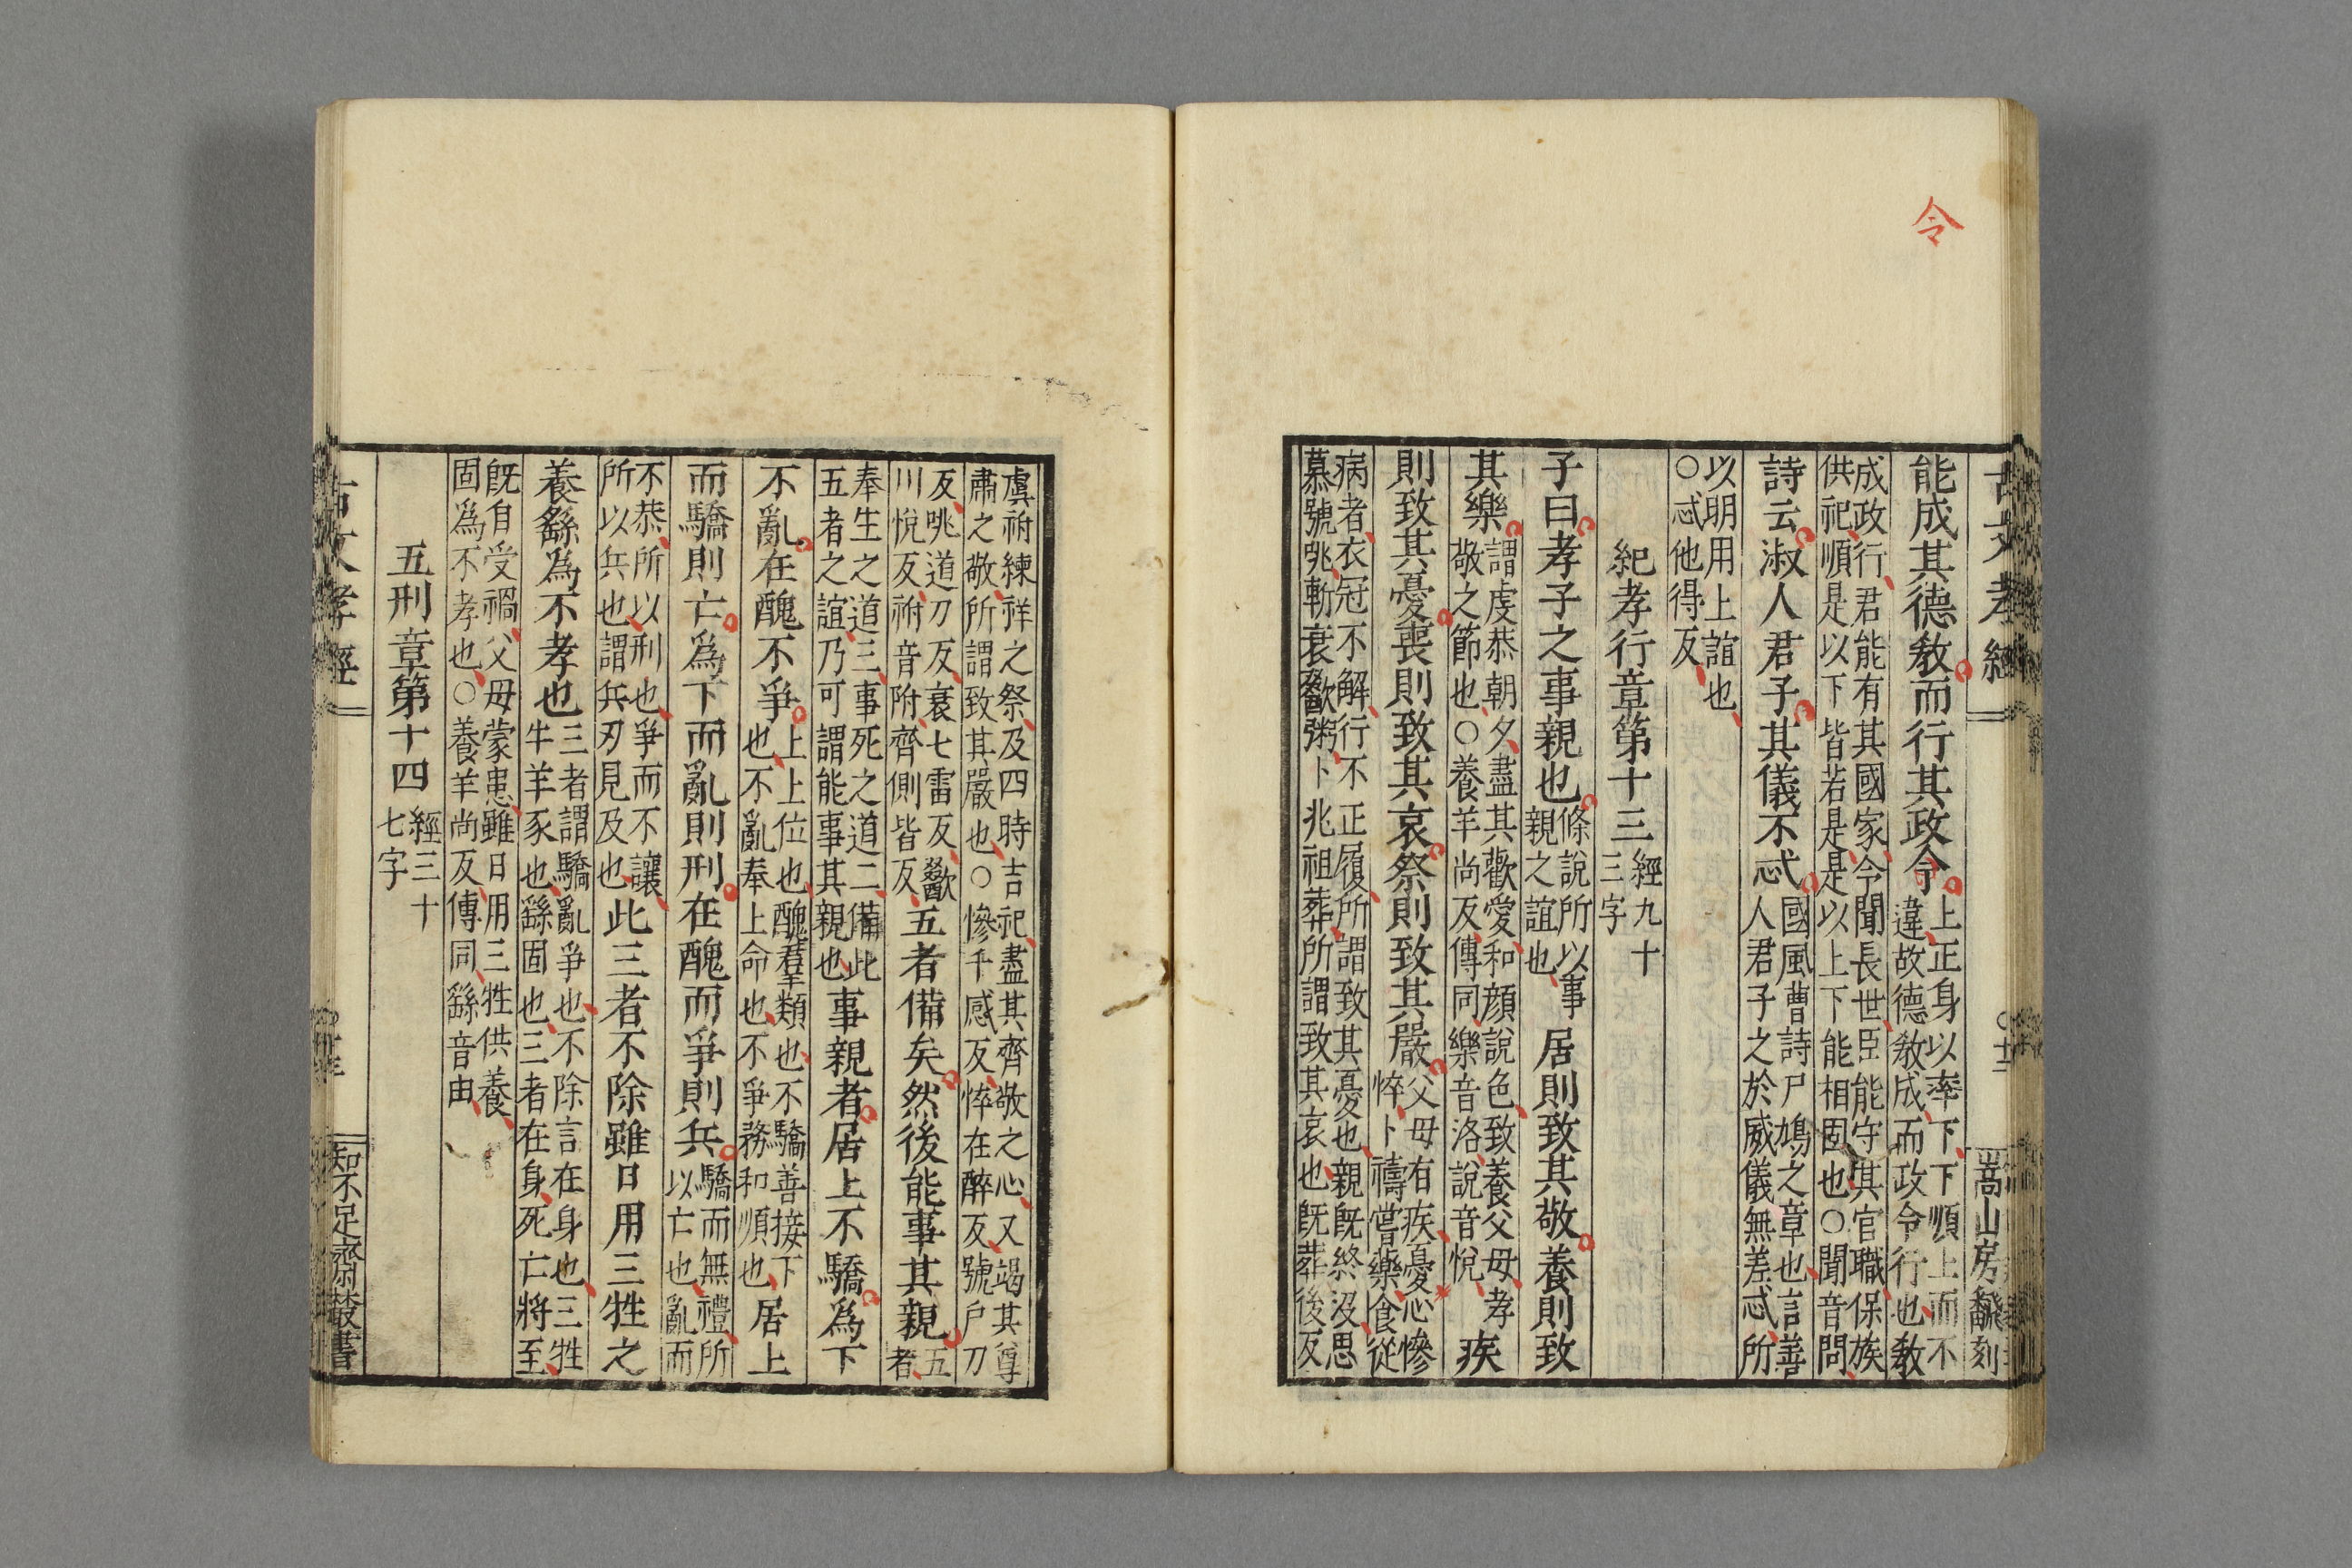 令
古文孝經
嵩山房飜刻
能成其德敎而行其政令上正身以率下下順上而不
違故德敎成而政令行也敎
成政行君能有其國家令聞長世臣能守其官職保族
供祀順是以下皆若是是以上下能相固也○聞音問
詩云淑人君子其儀不忒國風曹詩尸鳩之章也言善
人君子之於威儀無差忒所
以明用上誼也
○忒他得反
紀孝行章第十三經九十
三字
子曰孝子之事親也條說所以事
親之誼也居則致其敬養則致
其樂謂虔恭朝夕盡其歡愛和顔說色致養父母孝
敬之節也○養羊尚反傳同樂音洛說音悅疾
則致其憂喪則致其哀祭則致其嚴父母有疾憂心慘
悴卜禱嘗藥食從
病者衣冠不解行不正履所謂致其憂也親旣終沒思
慕號咷斬衰歠粥卜兆祖葬所謂致其哀也旣葬後反
虞祔練祥之祭及四時吉祀盡其齊敬之心又竭其尊
肅之敬所謂致其嚴也○慘千感反悴在醉反號戶刀
反咷道刀反衰七雷反歠
川悅反祔音附齊側皆反五者備矣然後能事其親五
者
奉生之道三事死之道二備此
五者之誼乃可謂能事其親也事親者居上不驕爲下
不亂在醜不爭上上位也醜羣類也不驕善接下
也不亂奉上命也不爭務和順也居上
而驕則亡爲下而亂則刑在醜而爭則兵驕而無禮所
以亡也亂而
不恭所以刑也爭而不讓
所以兵也謂兵刃見及也此三者不除雖日用三牲之
養繇爲不孝也三者謂驕亂爭也不除言在身也三牲
牛羊豕也繇固也三者在身死亡將至
旣自受禍父母蒙患雖日用三牲供養
固爲不孝也○養羊尚反傳同繇音由
五刑章第十四經三十
七字
古文孝經
知不足齋叢書